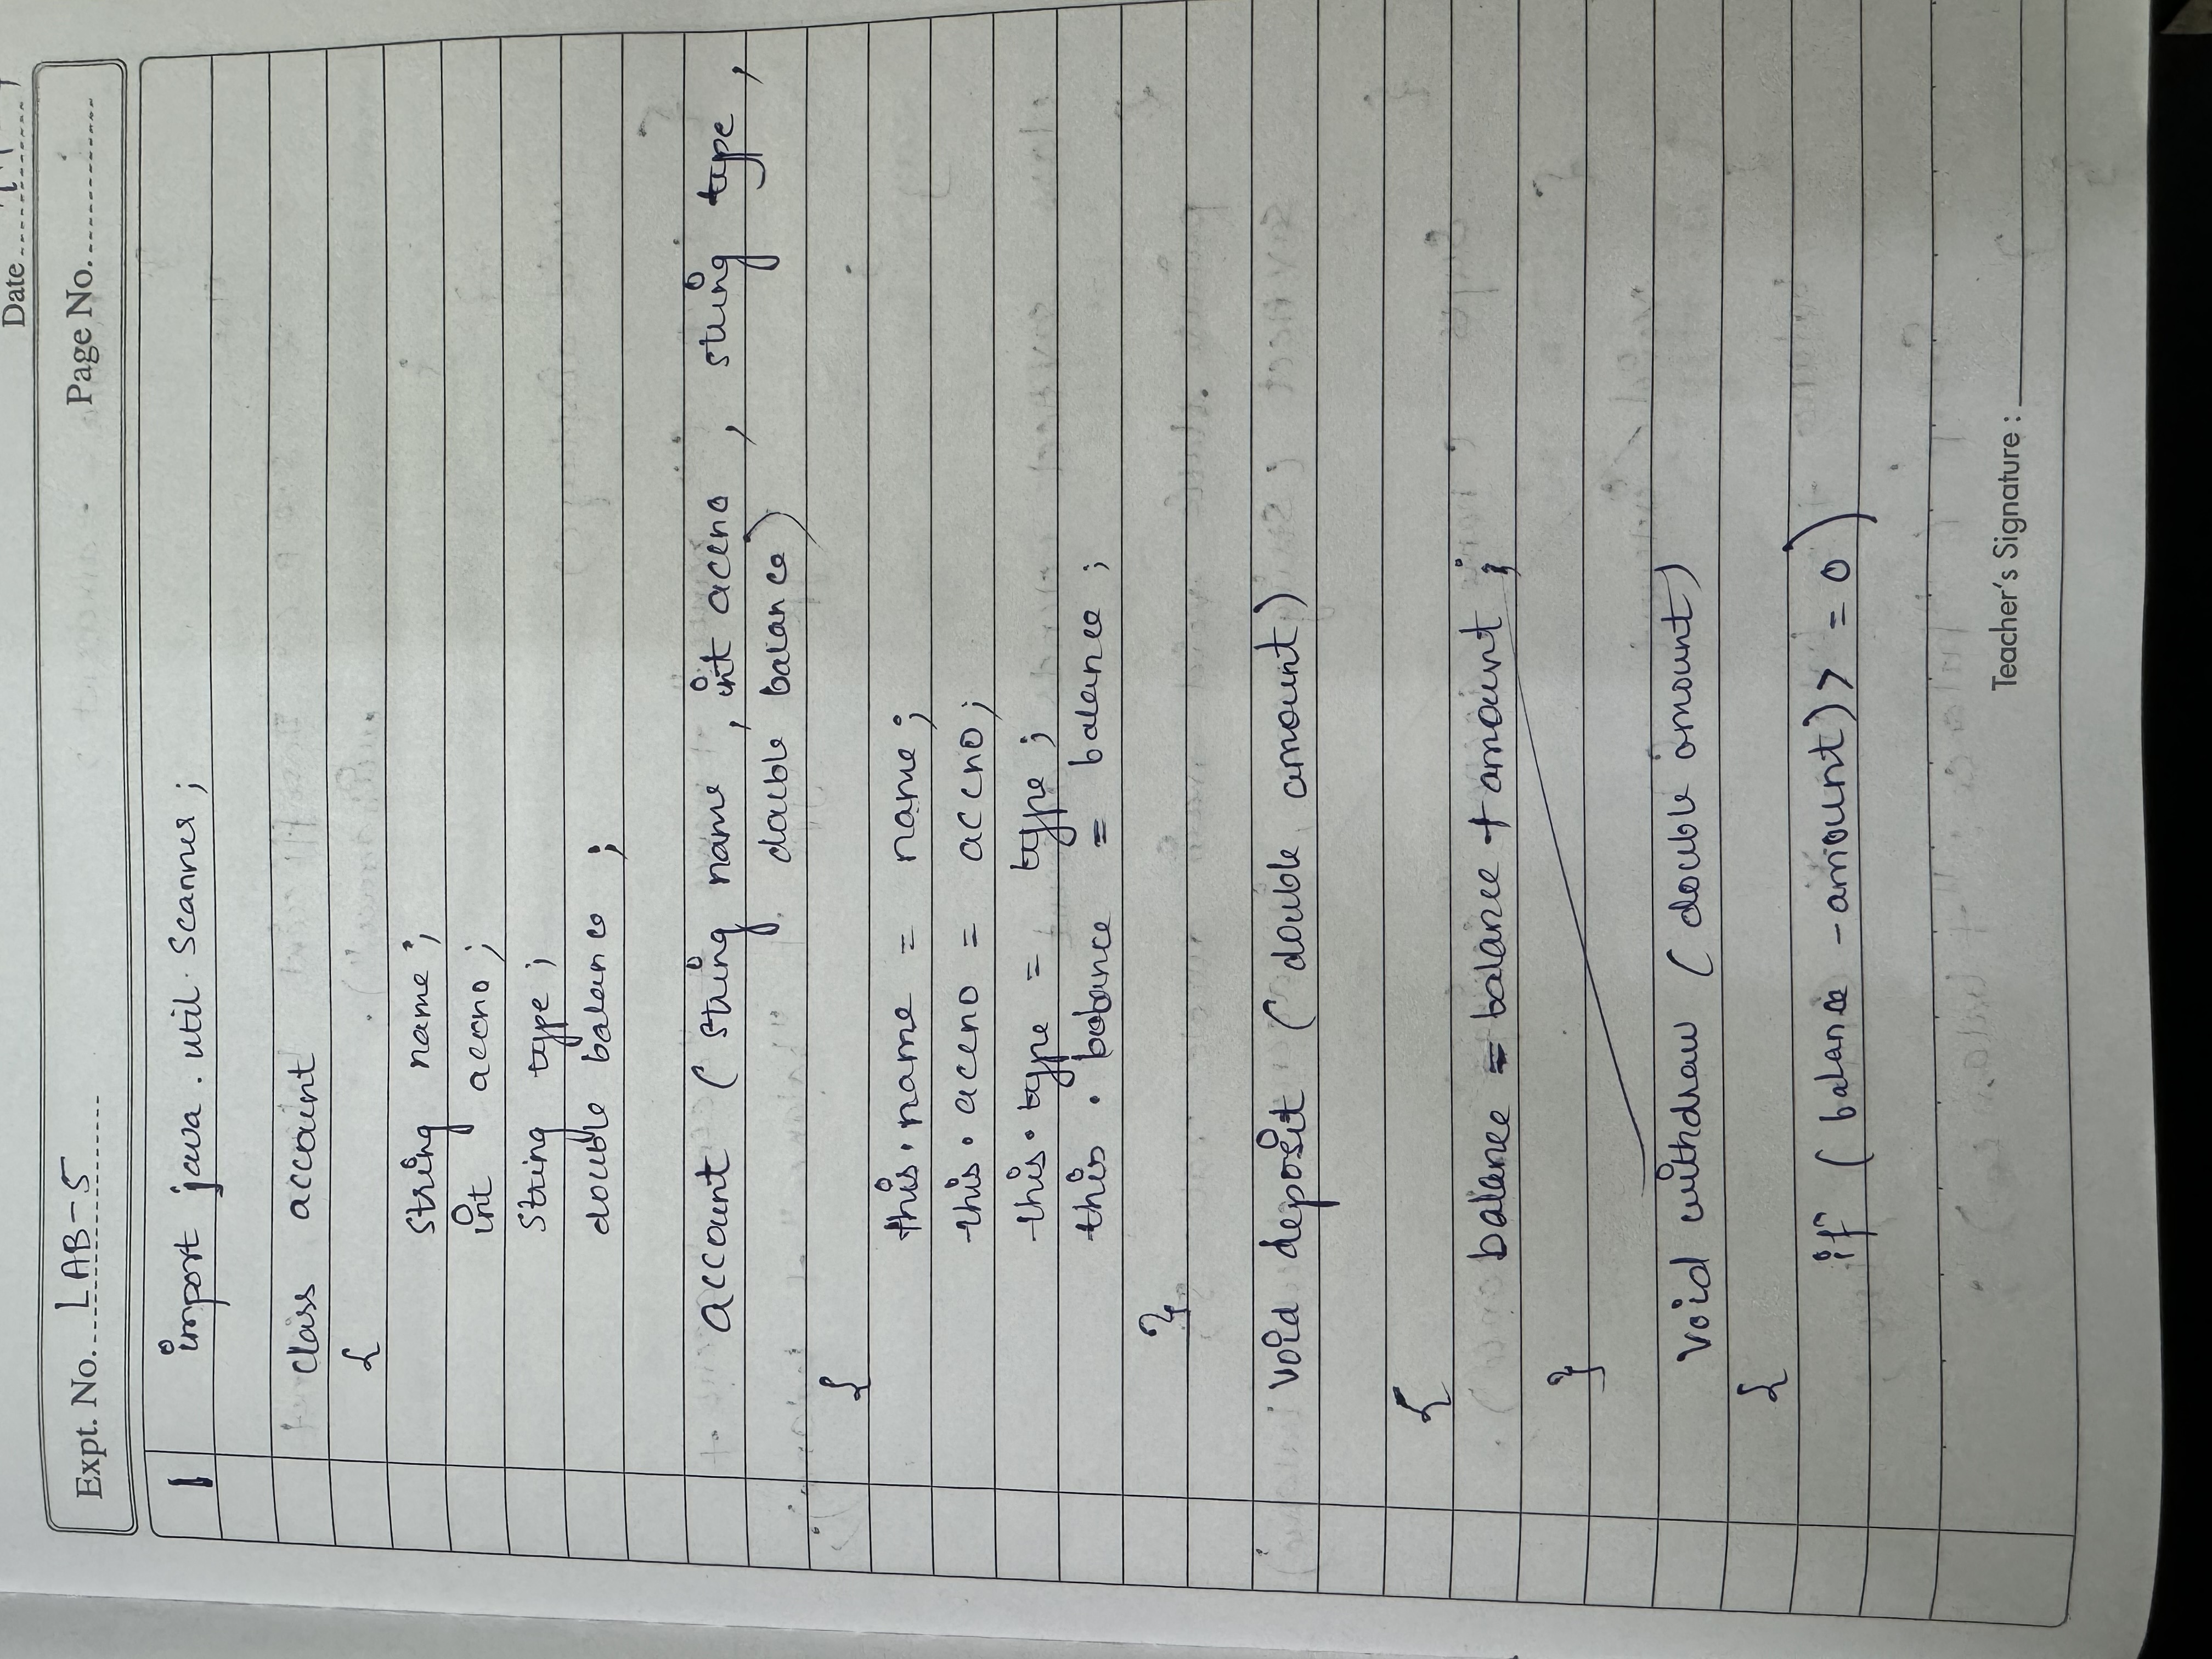 Date
Expt. No. LAB-5
Page No.
1 import java.util.Scanner;
class account
{
string name;
int accno;
String type;
double balance;
account (string name, int accno, string type,
double balance)
{
this.name = name;
this.accno = accno;
this.type = type;
this.balance = balance;
}
void deposit (double amount)
{
balance = balance + amount;
}
void withdraw (double amount)
{
if (balance - amount) > = 0)
Teacher's Signature :